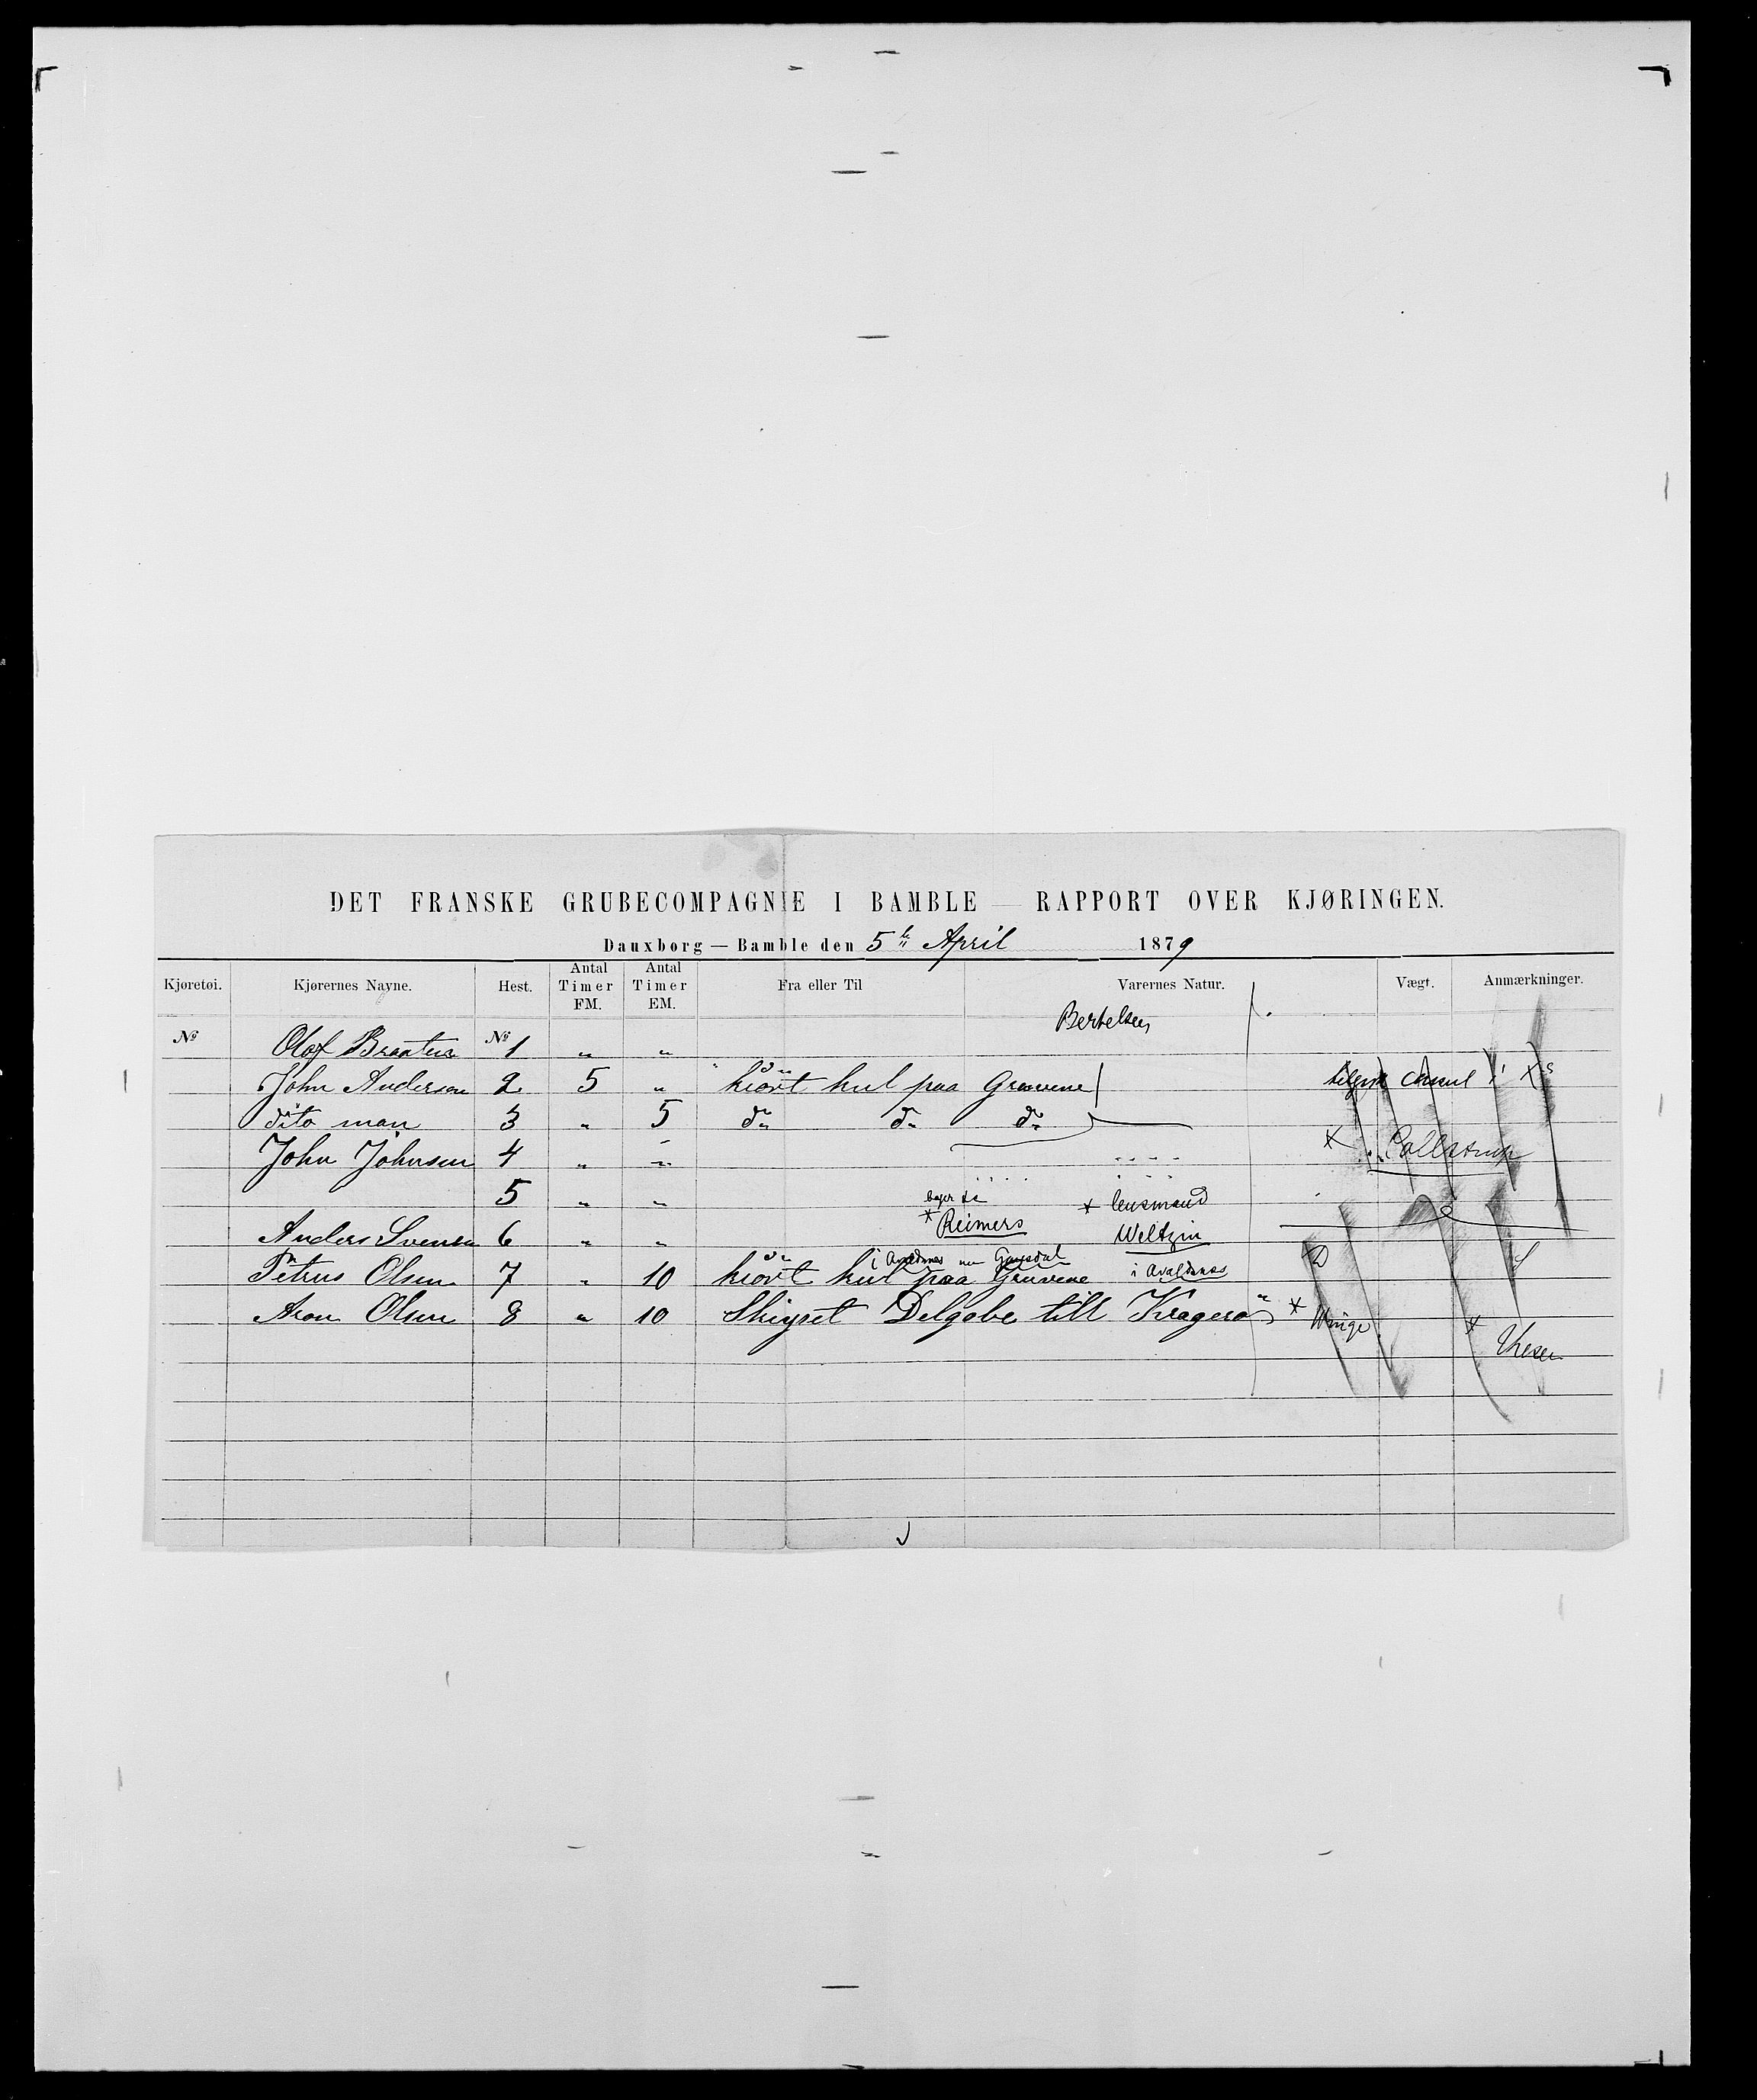 DET FRANSKE GRUBECOMPAGNIE I BAMBLE — RAPPORT OVER KJØRINGEN.
Dauxborg — Bamble den 5te April 1879
Kjøretøi. Kjørernes Nayne. Hest. Antal Timer FM. Antal Timer EM. Fra eller Til Varernes Natur. Vægt. Anmærkninger.
Bertelsen
No Olof Braaten No 1 " "
John Andersen 2 5 " kiört kul paa Gruvene
dito man 3 " 5 do do do
John Johnsen 4 " "
Collstrup
5 " "
lensmand
Reimers Weltzin
Anders Svensen 6 " "
i Avaldsnes
Petrus Olsen 7 " 10 kiört kul paa Gruvene
D S
Aron Olsen 8 " 10 Skyset Delgobe till Kragerö
Winge